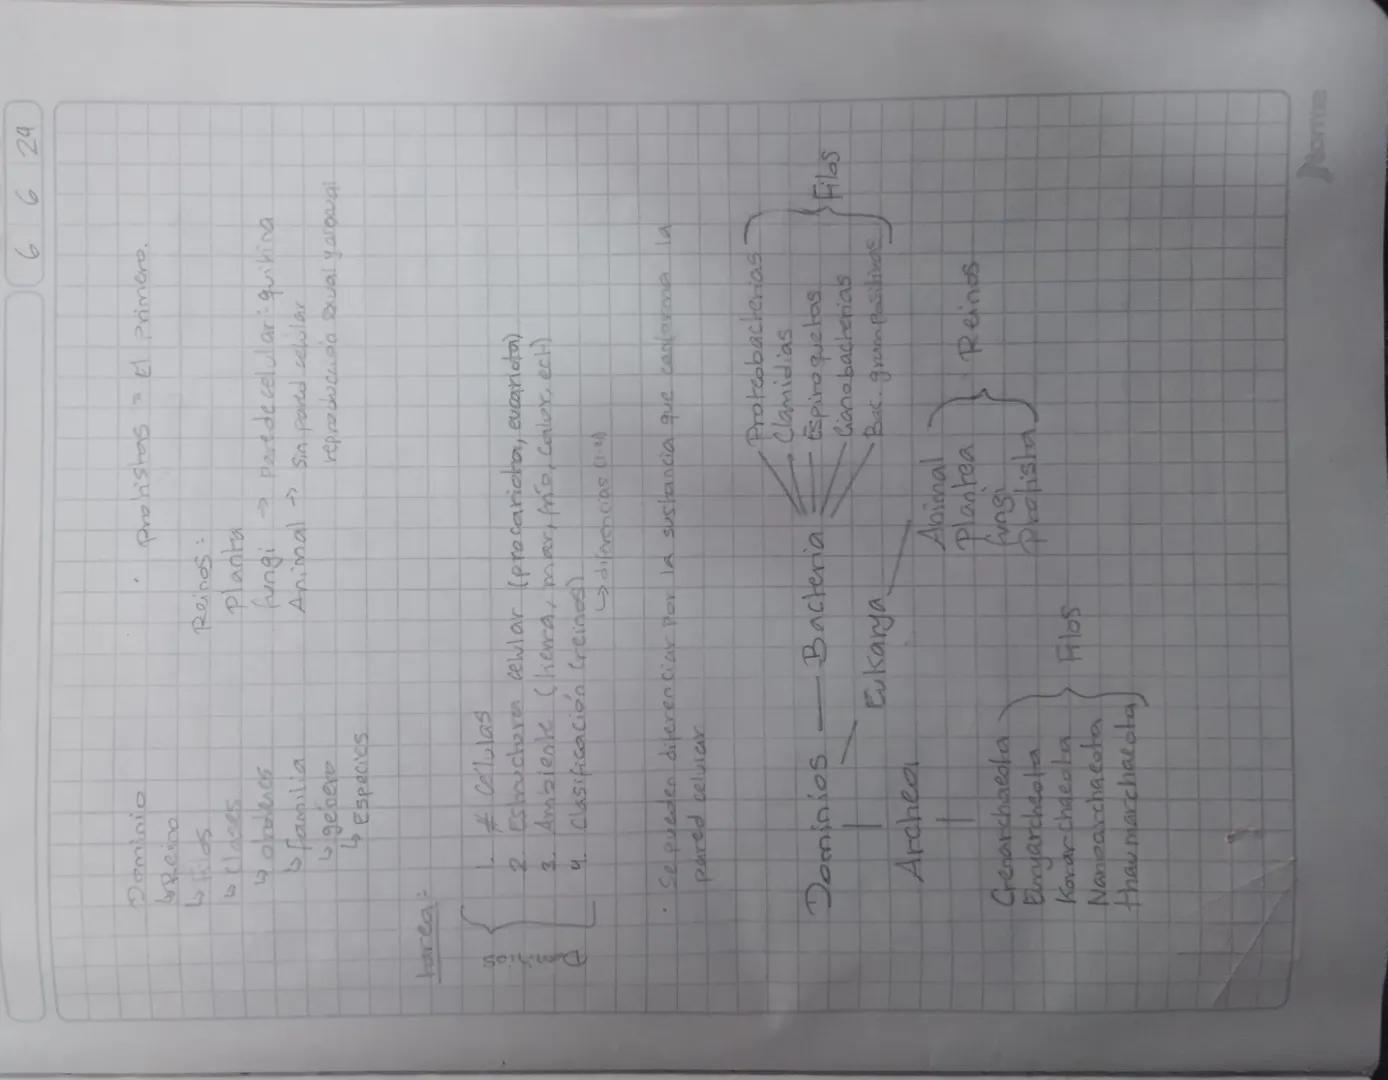 6 6 24
Dominio
↳ Reino
↳ Filos
↳ clases
↳ ordenes
↳ familia
↳ género
↳ Especies
· Protistas = El primero.
Reinos:
Planta
fungi → pared celular: quitina
Animal → sin pared celular
reproducción sexual y asexual
tarea:
1. # Células
2. Estructura celular (procariota, eucariota)
3. Ambiente (tierra, mar, frío, calor, ect)
4. Clasificación (reinos)
↳ diferencias
· Se pueden diferenciar por la sustancia que conforma la
pared celular
Dominios — Bacteria
Proteobacterias
Clamidias
Espiroquetas
Cianobacterias
Bac. grampositivas
Filos
Eukarya
Animal
Plantea
fungi
Protista
Reinos
Archea
Crenarchaeota
Euryarcheota
Korarchaeota
Nanoarchaeota
thaumarchaeota
Filos
Norma